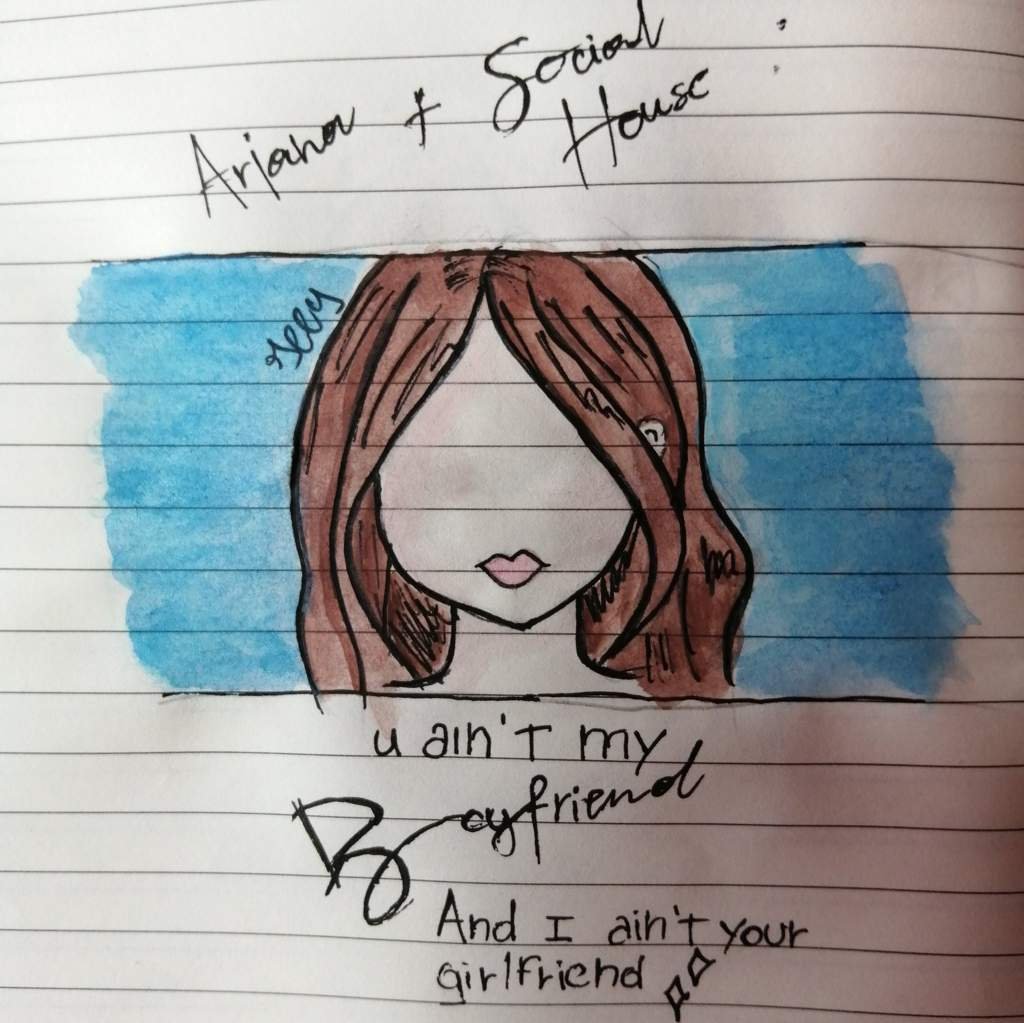 Ariana + Social
House :
u ain't my
Boyfriend
And I ain't your
girlfriend